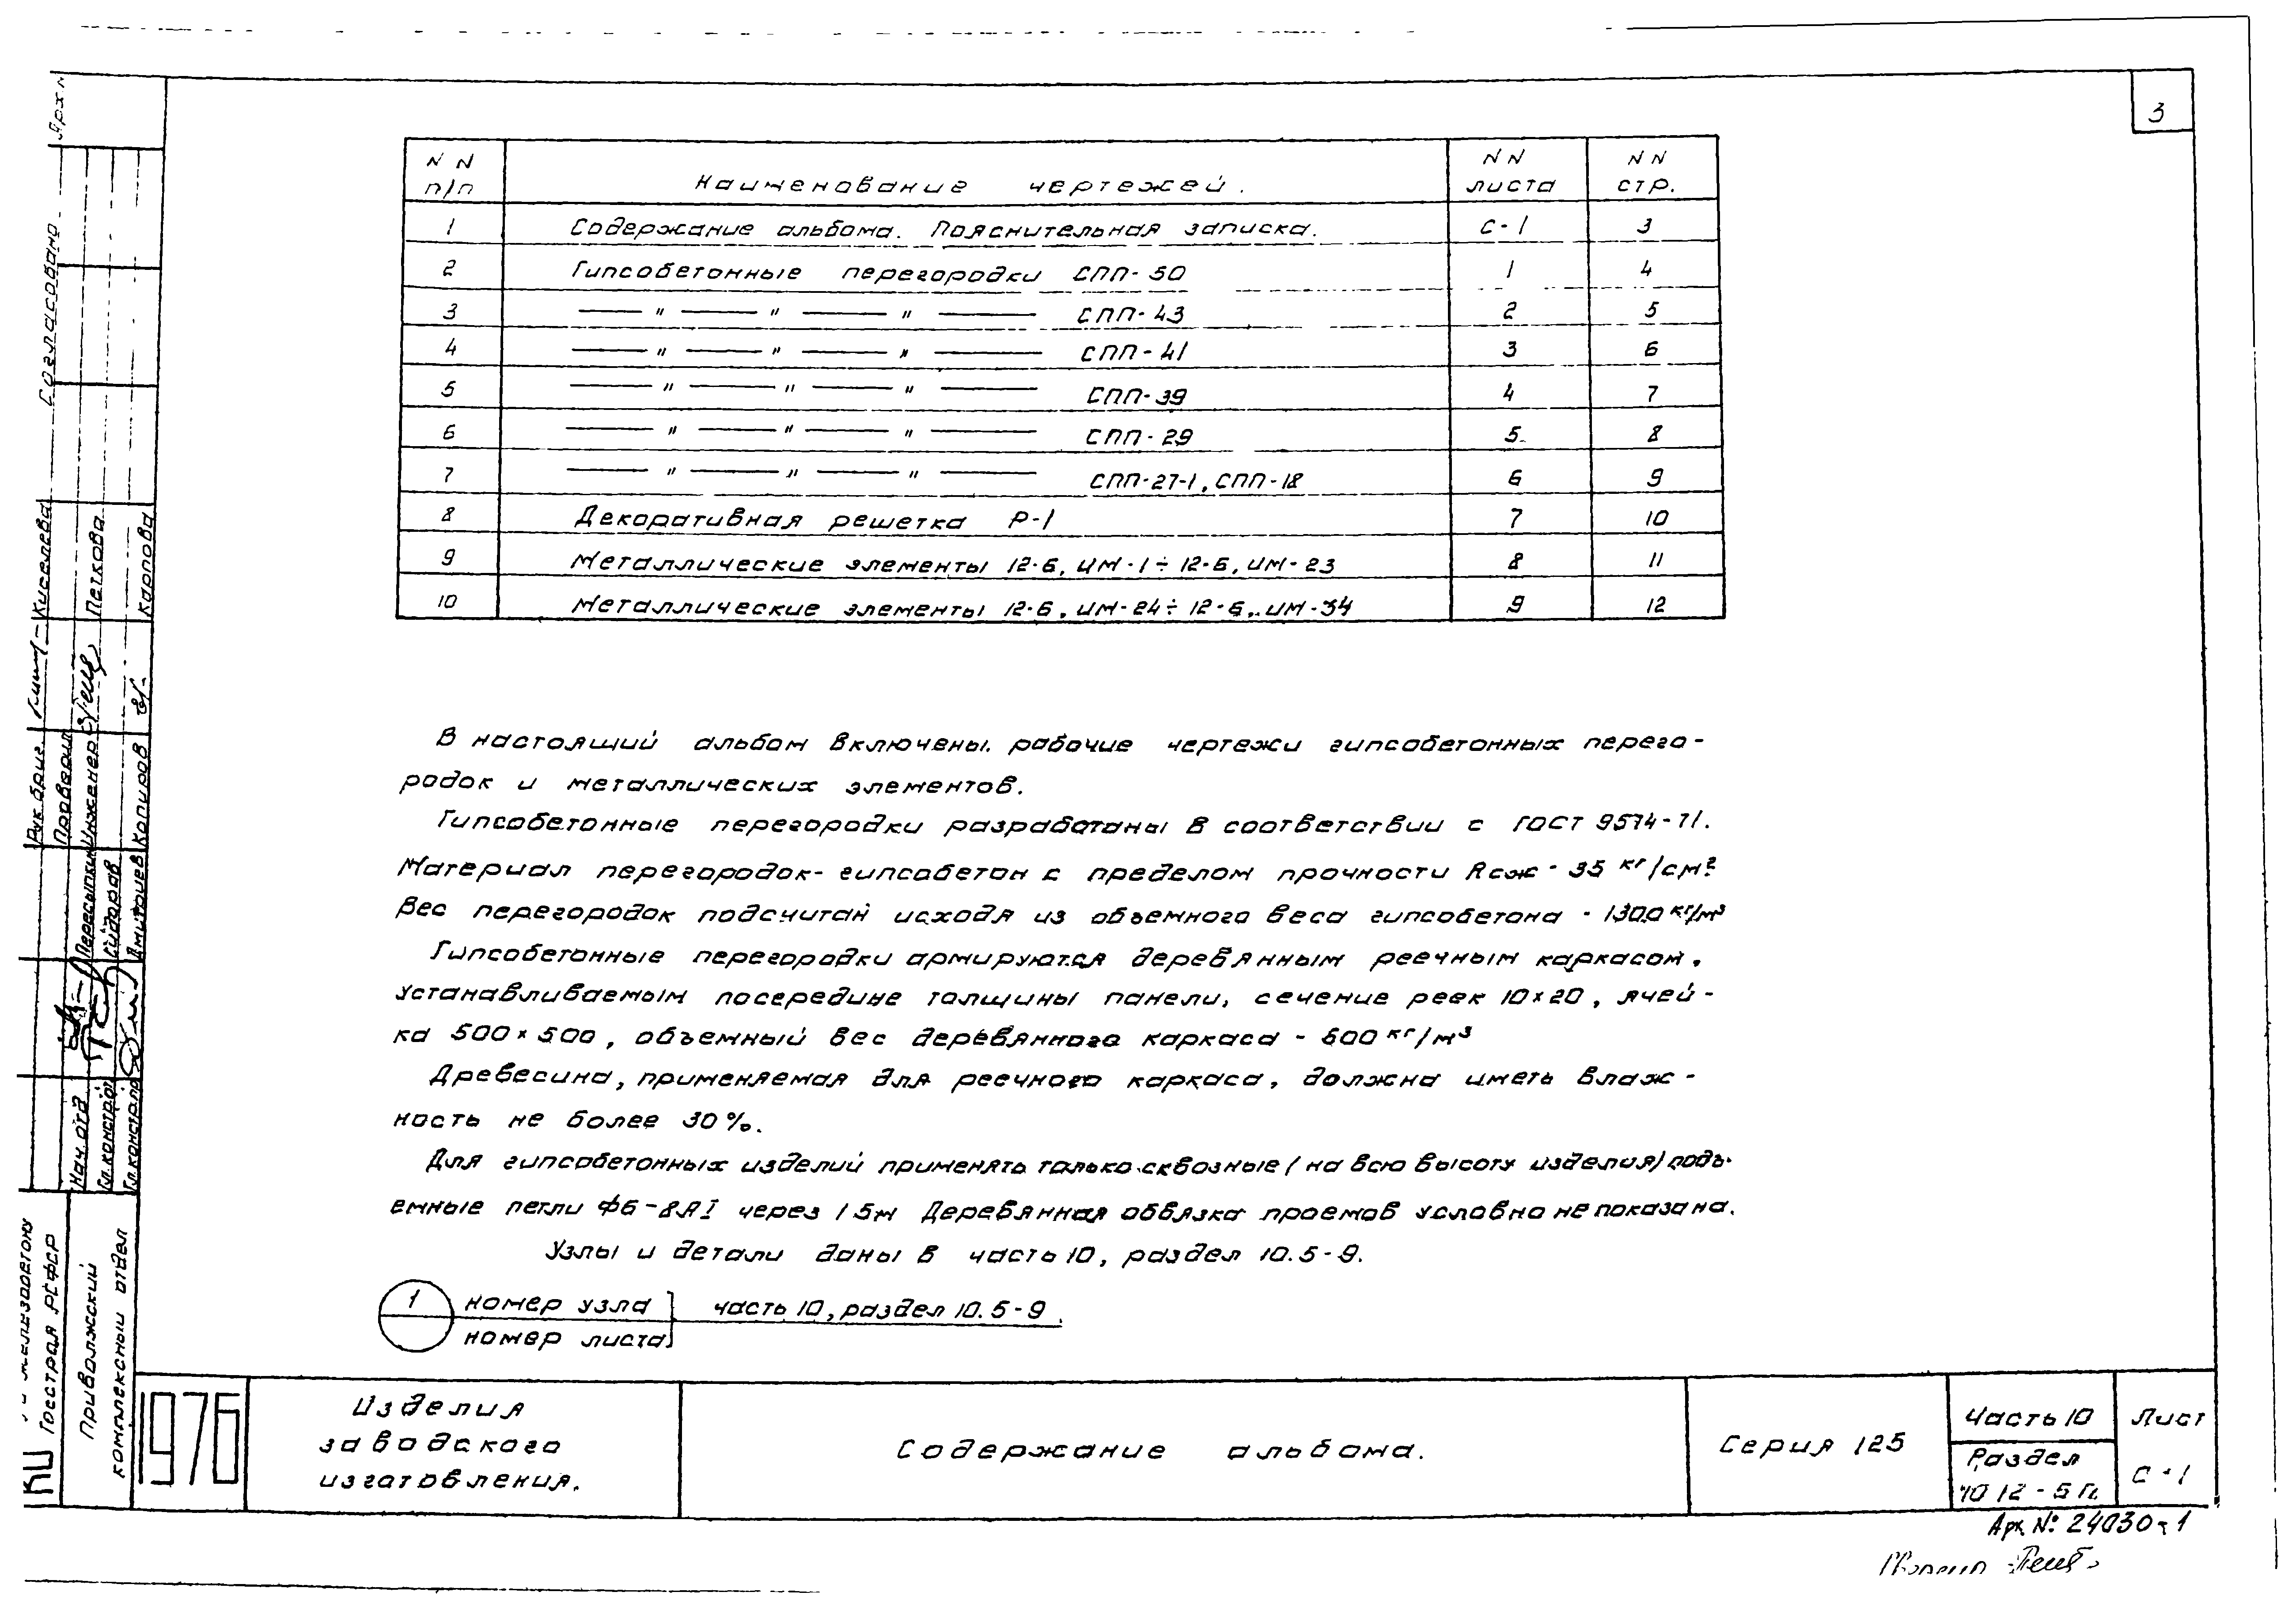 3
N N п/п Наименование чертежей. N N листа N N стр.
1 Содержание альбома. Пояснительная записка. С-1 3
2 Гипсобетонные перегородки СПП-50 1 4
3 — " — " — " — СПП-43 2 5
4 — " — " — " — СПП-41 3 6
5 — " — " — " — СПП-39 4 7
6 — " — " — " — СПП-29 5 8
7 — " — " — " — СПП-27-1, СПП-18 6 9
8 Декоративная решетка Р-1 7 10
9 Металлические элементы 12-Б, ИМ-1÷12-Б, ИМ-23 8 11
10 Металлические элементы 12-Б, ИМ-24÷12-Б, ИМ-34 9 12
В настоящий альбом включены рабочие чертежи гипсобетонных перего-
родок и металлических элементов.
Гипсобетонные перегородки разработаны в соответствии с ГОСТ 9574-71.
Материал перегородок- гипсобетон с пределом прочности Rсж - 35 кг/см²
Вес перегородок подсчитан исходя из объемного веса гипсобетона - 1300 кг/м³
Гипсобетонные перегородки армируются деревянным реечным каркасом,
устанавливаемым посередине толщины панели, сечение реек 10×20, ячей-
ка 500×500, объемный вес деревянного каркаса - 600 кг/м³
Древесина, применяемая для реечного каркаса, должна иметь влаж-
ность не более 30%.
Для гипсобетонных изделий применять только сквозные (на всю высоту изделия) подъ-
емные петли ф6-8АI через 1 5м Деревянная обвязка проемов условно не показана.
Узлы и детали даны в часть 10, раздел 10.5-9.
1 номер узла часть 10, раздел 10.5-9.
номер листа
1976
Изделия
заводского
изготовления.
Содержание альбома.
Серия 125
Часть 10
Раздел
10 12-5 П.
Лист
С-1
Арх № 24030-1
Согласовано
Рук. бриг. Киселева
Проверил
Инженер Пешкова
Копировал Карпова
Нач. отд Пересыпкин
Гл. констр Сидоров
Гл. констр Дмитриев
Госстрая РСФСР
Приволжский
комплексный отдел